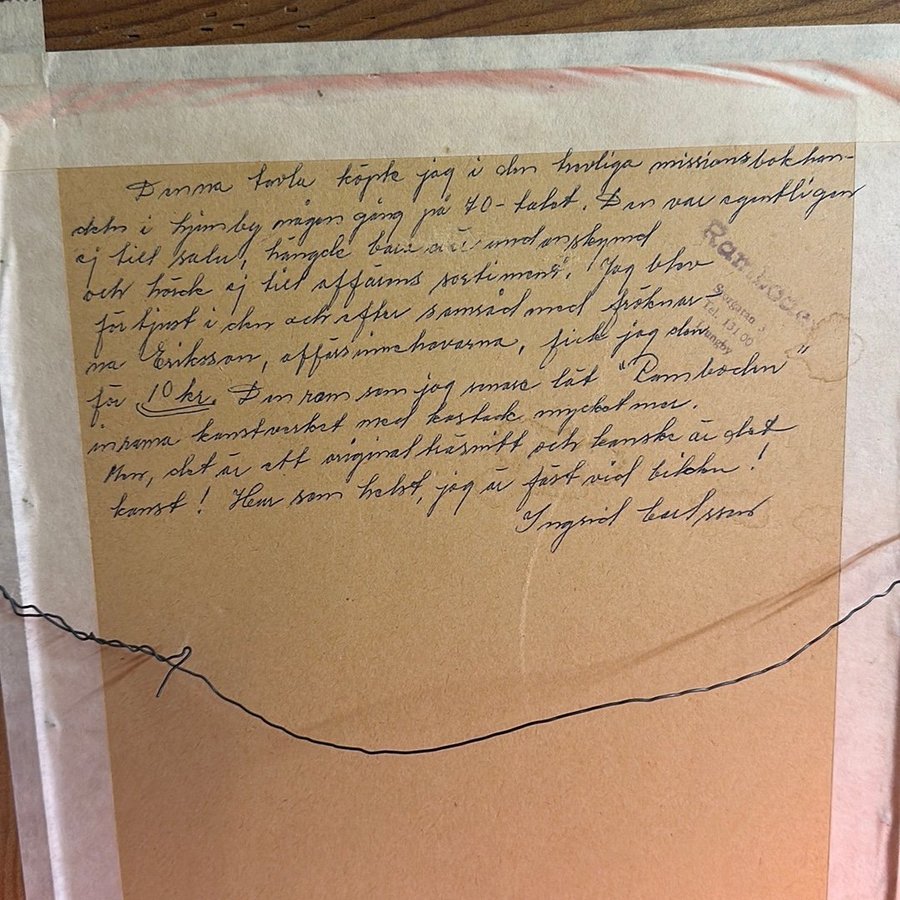 Denna tavla köpte jag i den trevliga missionsbokhan-
deln i Ljungby någon gång på 70-talet. Den var egentligen
ej till salu, hängde bara där undanskymd
och hörde ej till affärens sortiment. Jag blev
förtjust i den och efter samråd med fröknar-
na Eriksson, affärsinnehavarna, fick jag den
för 10 kr. Den ram som jag senare lät "Ramboden"
inrama konstverket med kostade mycket mer.
Men, det är ett original träsnitt och kanske är det
konst! Hur som helst, jag är fäst vid bilden!
Ingrid Carlsson
Ramboden
Storgatan 3
Tel. 131 00
Ljungby